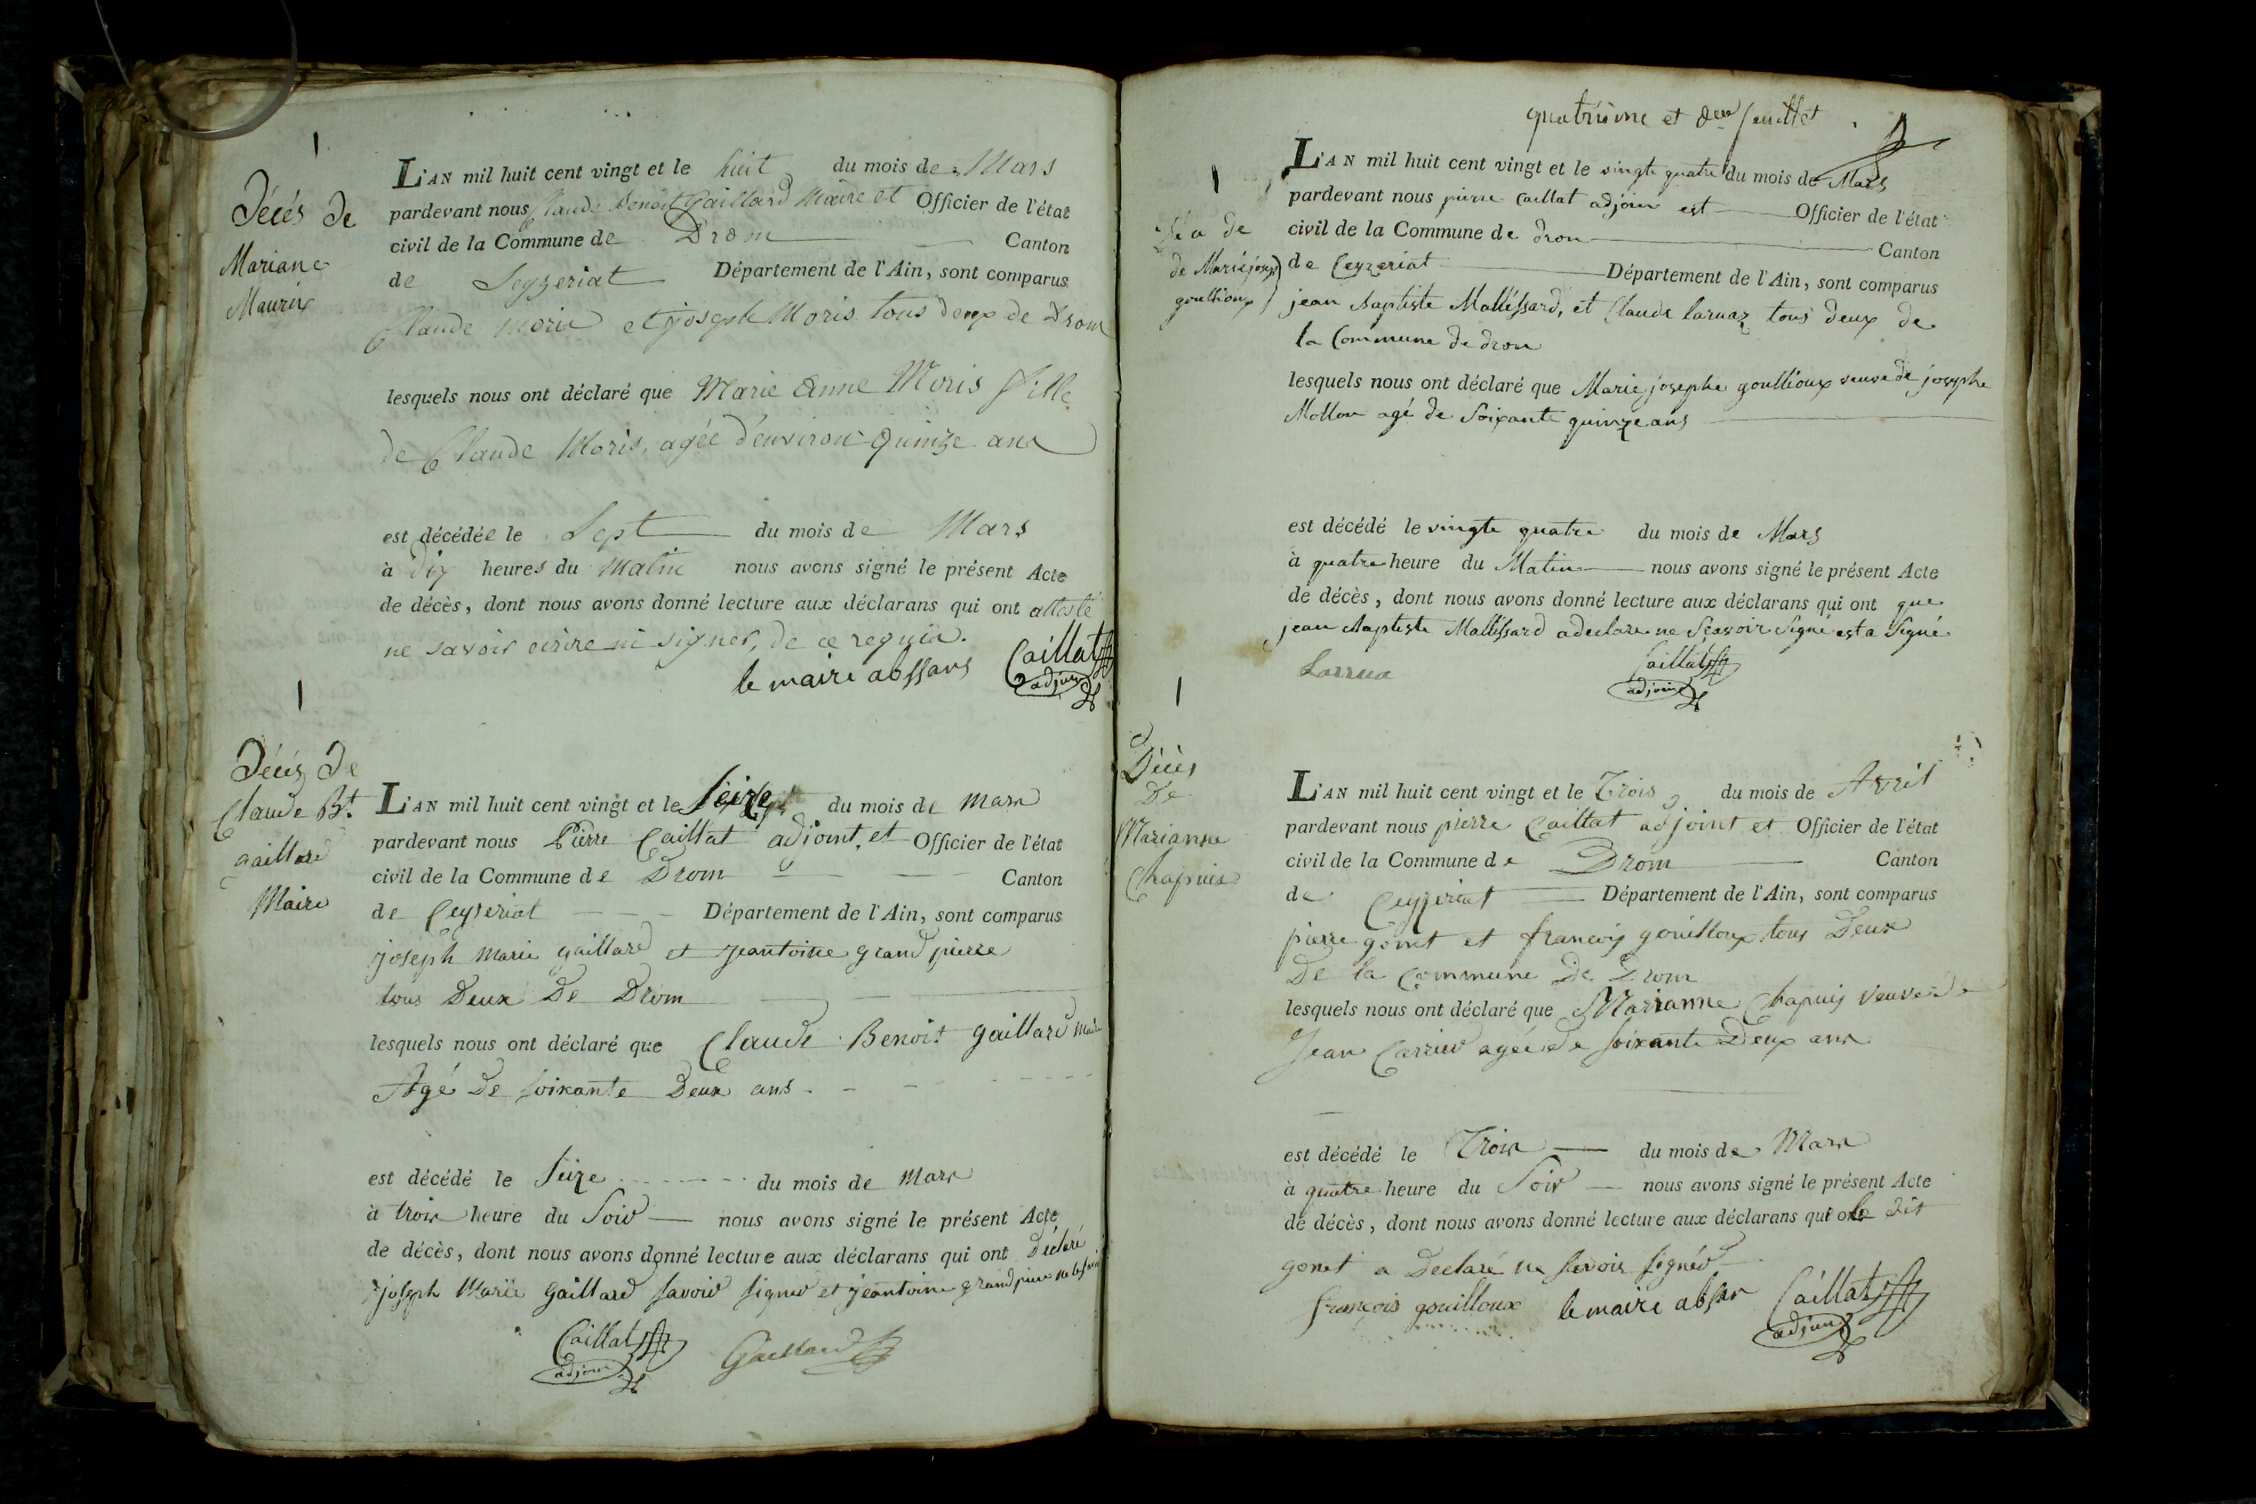 Décés de
Mariane
Maurix
L'AN mil huit cent vingt et le huit du mois de Mars
pardevant nous Claude Benoit Gaillard Maire et Officier de l'état
civil de la Commune de Drom Canton
de Seyzeriat Département de l'Ain, sont comparus
Claude Moris et joseph Moris tous deux de Drom
lesquels nous ont déclaré que Marie Anne Moris fille
de Claude Moris, agée d'environ Quinze ans
est décédée le Sept du mois de Mars
à dix heures du Matin nous avons signé le présent Acte
de décès, dont nous avons donné lecture aux déclarans qui ont attesté
ne savoir ecrire ni signer, de ce requis.
le maire abssans Caillat
adjoint
Décés De
Claude Bt
gaillard
Maire
L'AN mil huit cent vingt et le Seize du mois de mars
pardevant nous Pierre Caillat adjoint, et Officier de l'état
civil de la Commune de Drom Canton
de Ceyzeriat Département de l'Ain, sont comparus
joseph Marie gaillard et jeantoine grand pierre
tous Deux De Drom
lesquels nous ont déclaré que Claude Benoit gaillard maire
Agé De soixante Deux ans
est décédé le Seize du mois de Mars
à trois heure du Soir nous avons signé le présent Acte
de décès, dont nous avons donné lecture aux déclarans qui ont Déclaré
joseph Marie gaillard savoir signer et jeantoine grand pierre ne le savoir
Caillat Gaillard
adjoint
quatrième et der feuillet
de Marie joseph
goullioux
L'AN mil huit cent vingt et le vingte quatre du mois de Mars
pardevant nous pierre Caillat adjoin est Officier de l'état
civil de la Commune de dron Canton
de Ceyzeriat Département de l'Ain, sont comparus
jean Baptiste Mallissard, et Claude larnaz tous deux de
la Commune de dron
lesquels nous ont déclaré que Marie josephe goullioux veuve de josephe
Mollon agé de Soixante quinze ans
est décédé le vingte quatre du mois de Mars
à quatre heure du Matin nous avons signé le présent Acte
de décès, dont nous avons donné lecture aux déclarans qui ont que
jean Baptiste Mallissard a declare ne Scavoir Signé est a Signé
Larrua Caillat
adjoint
Décès
De
Marianne
Chapuis
L'AN mil huit cent vingt et le Trois du mois de Avril
pardevant nous pierre Caillat adjoint et Officier de l'état
civil de la Commune de Drom Canton
de Ceyzeriat Département de l'Ain, sont comparus
pierre gonet et françois gouilloux tous Deux
De la Commune De Drom
lesquels nous ont déclaré que Marianne Chapuis veuve de
Jean Carrier agée de soixante Deux ans
est décédé le Trois du mois de Mars
à quatre heure du Soir nous avons signé le présent Acte
de décès, dont nous avons donné lecture aux déclarans qui ont le dit
gonet a Declaré ne savoir signer
françois gouilloux le maire abssan Caillat
adjoint